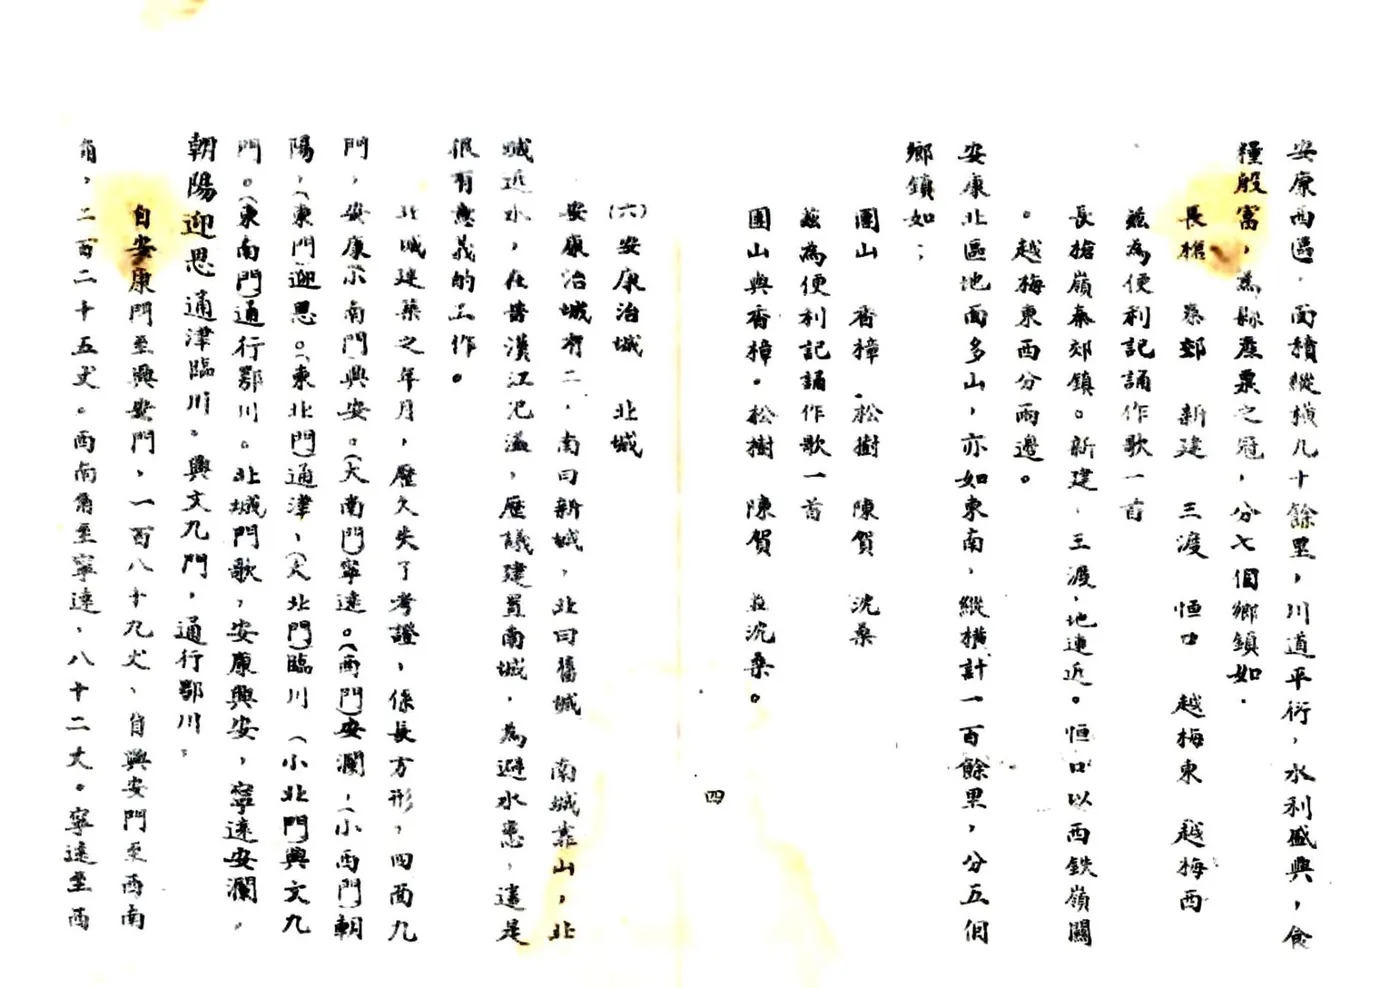 安康西區，面積縱橫八十餘里，川道平衍，水利盛興，食
糧殷富，為縣產粟之冠，分七個鄉鎮如．
長槍　秦郊　新建　三渡　恒口　越梅東　越梅西
茲為便利記誦作歌一首
長槍嶺秦郊鎮。新建．三渡．地連近。恒口以西鉄嶺關
。越梅東西分兩邊。
安康北區地面多山，亦如東南，縱橫計一百餘里，分五個
鄉鎮如；
團山　香樟．松樹　陳賀　沈桑
茲為便利記誦作歌一首
團山與香樟．松樹　陳賀　沈桑。
四
(六)安康治城　北城
安康治城有二，南曰新城，北曰舊城　南城靠山，北
城近水，在昔漢江氾溢，歷議建置南城．為避水患，這是
很有意義的工作。
北城建築之年月，歷久失了考證，係長方形，四面九
門，安康（小南門）興安。（大南門）寧遠。（西門）安瀾，（小西門）朝
陽，（東門）迎恩。（東北門）通津．（大北門）臨川（小北門）興文九
門。（東南門）通行鄂川。北城門歌，安康興安，寧遠安瀾．
朝陽迎恩通津臨川。興文九門，通行鄂川．
自安康門至興安門，一百八十九丈、自興安門至西南
角，二百二十五丈。西南角至寧遠，八十二丈。寧遠至西